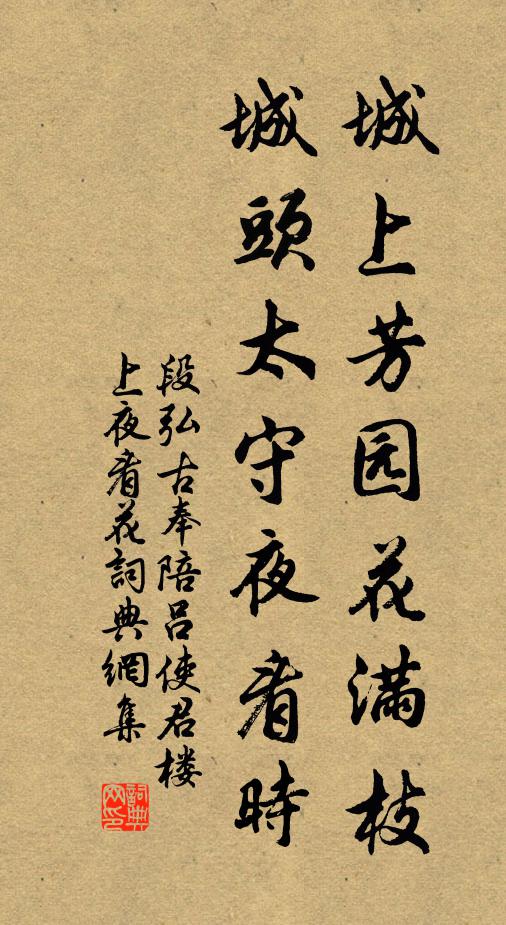 城上芳园花满枝
城頭太守夜看時
段弘古奉陪吕使君楼
上夜看花詞典網集
詞典网印